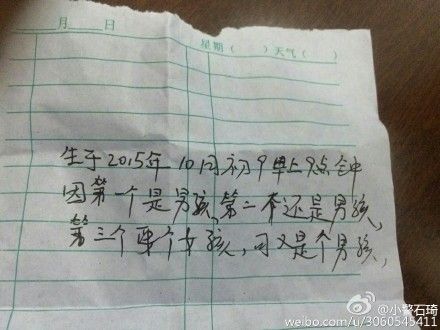 月 日
星期（ ）天气（ ）
生于2015年10月初9早上9点钟
因第一个是男孩,第二个还是男孩,
第三个要个女孩,可又是个男孩,
@小警石琦
weibo.com/u/3060545411